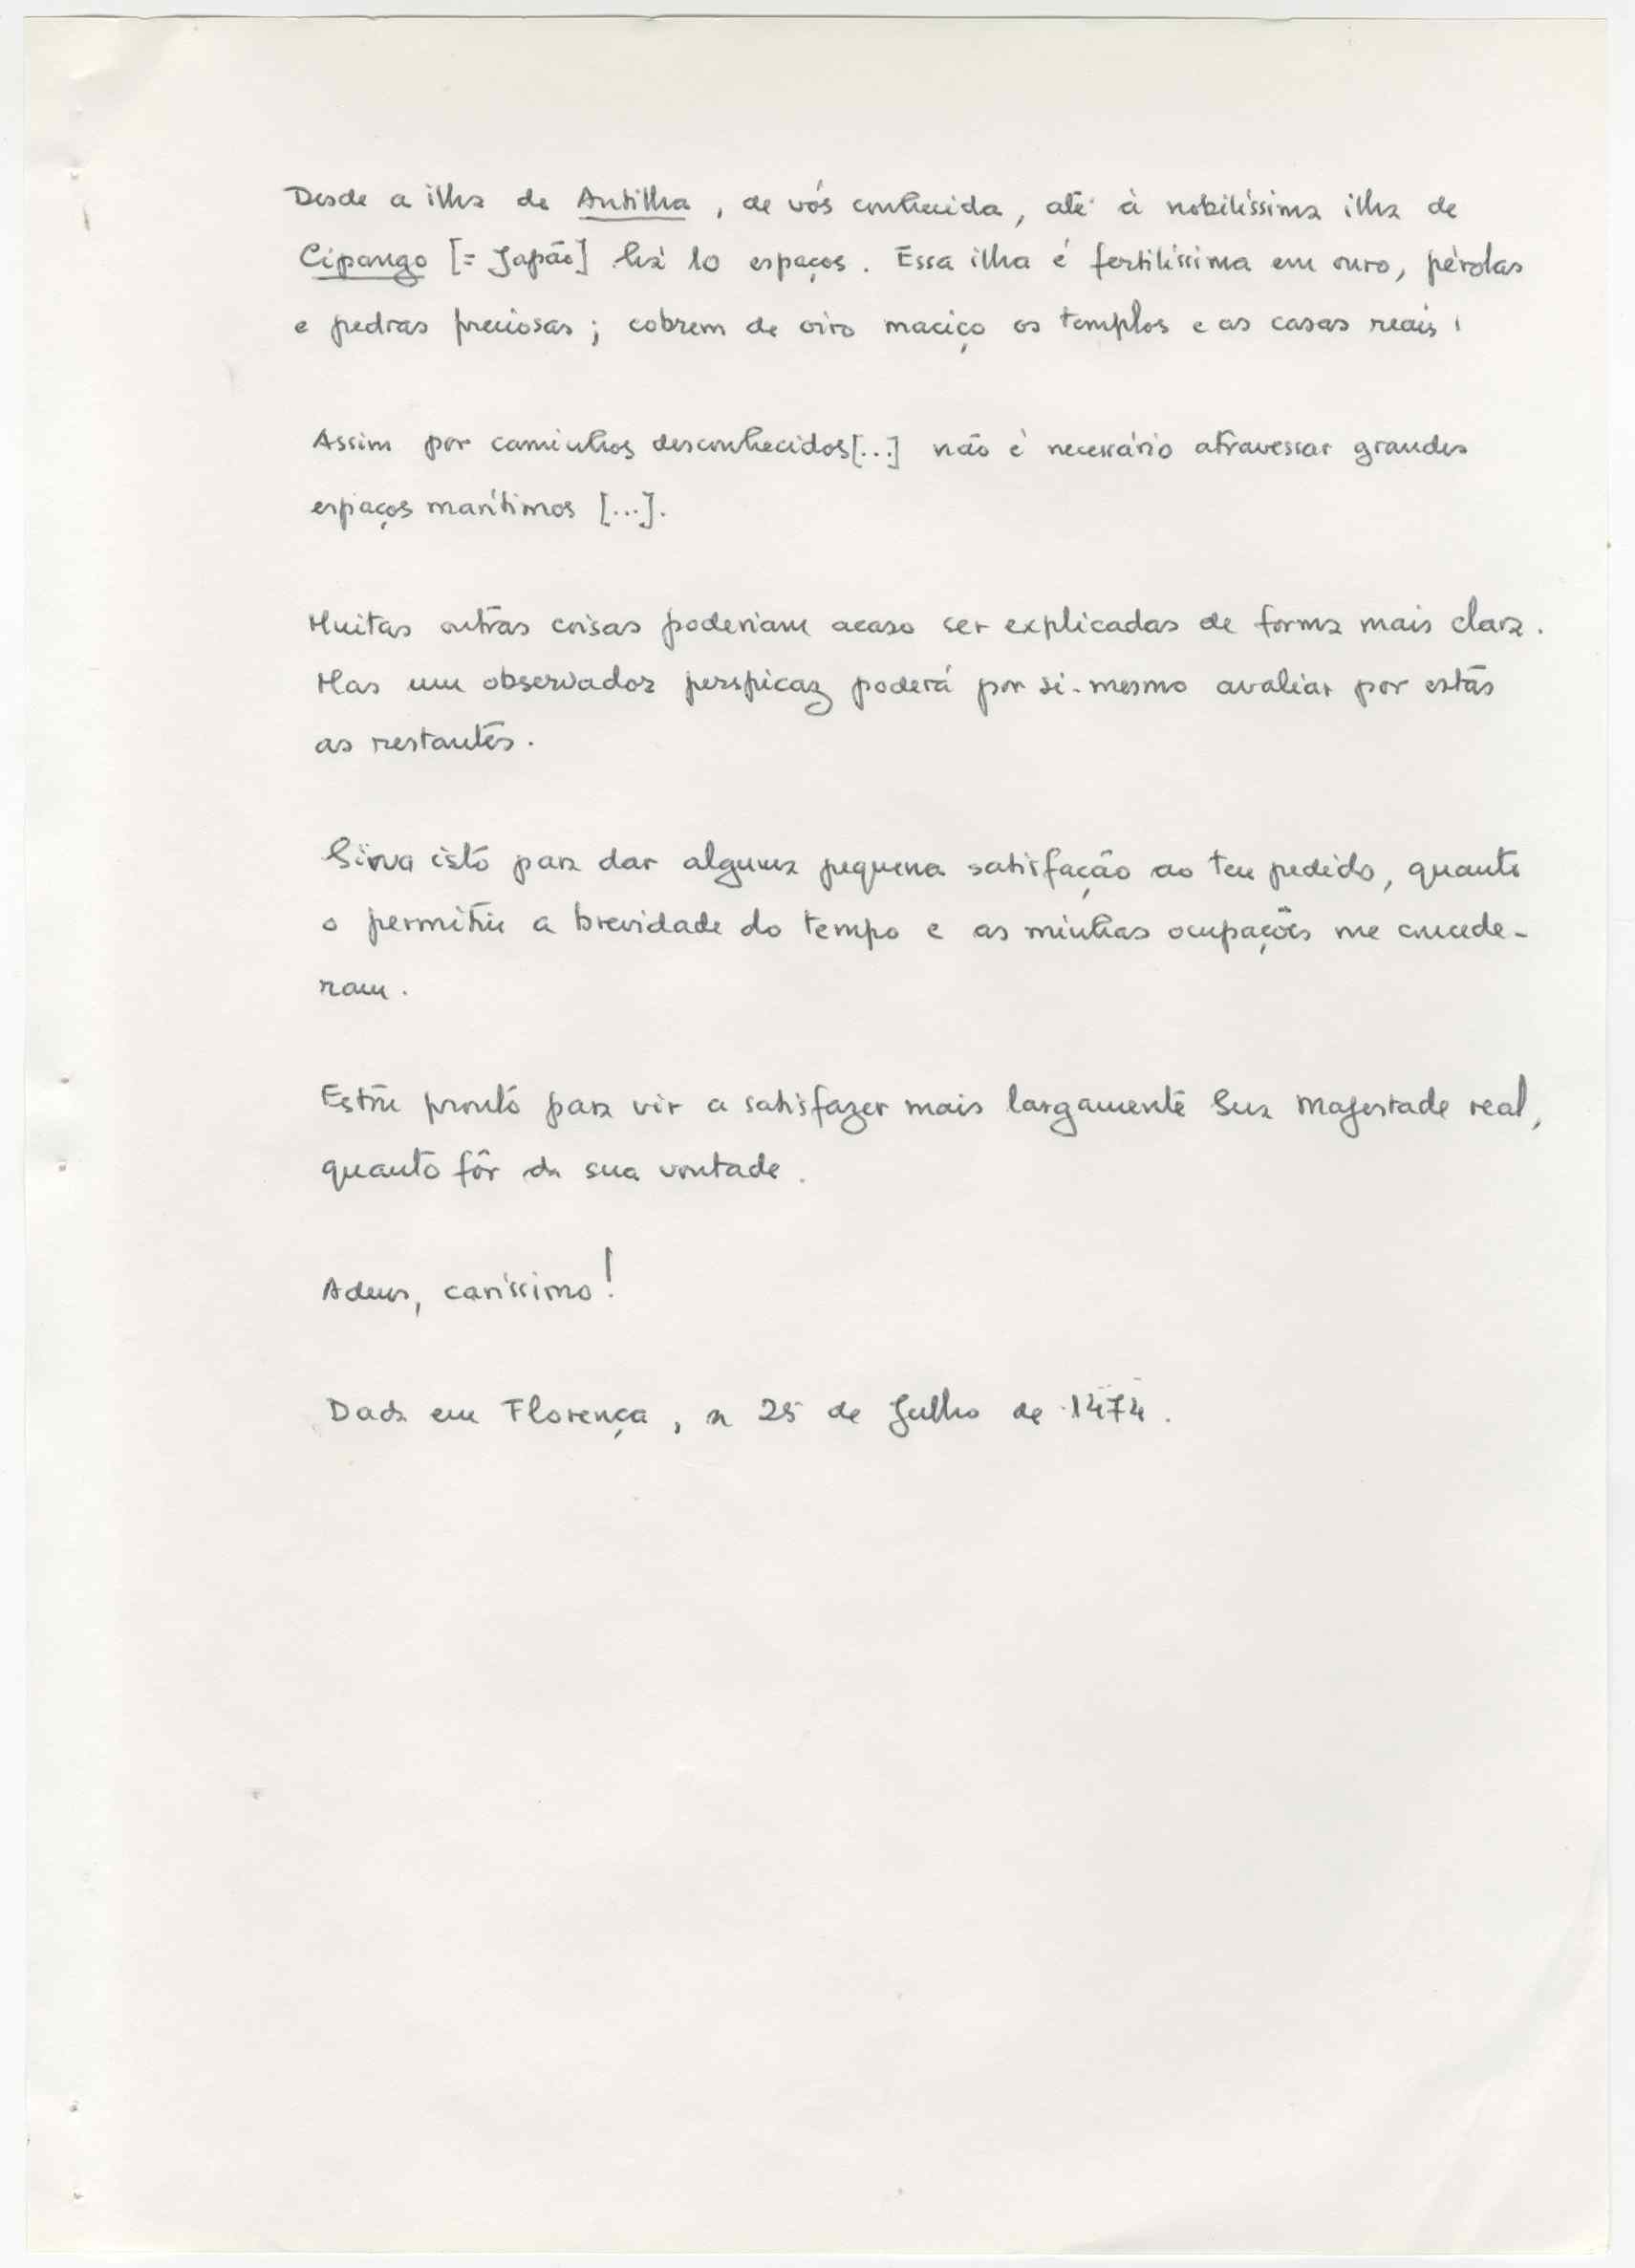 Desde a ilha de Antilha, de vós conhecida, até à nobilíssima ilha de
Cipango [= Japão] há 10 espaços. Essa ilha é fertilíssima em ouro, pérolas
e pedras preciosas; cobrem de oiro maciço os templos e as casas reais!
Assim por caminhos desconhecidos [...] não é necessário atravessar grandes
espaços marítimos [...].
Muitas outras coisas poderiam acaso ser explicadas de forma mais clara.
Mas um observador perspicaz poderá por si-mesmo avaliar por estas
as restantes.
Sirva isto para dar alguma pequena satisfação ao teu pedido, quanto
o permitiu a brevidade do tempo e as minhas ocupações me concede-
ram.
Estou pronto para vir a satisfazer mais largamente Sua Majestade real,
quanto fôr da sua vontade.
Adeus, caríssimo!
Dada em Florença, a 25 de Julho de 1474.